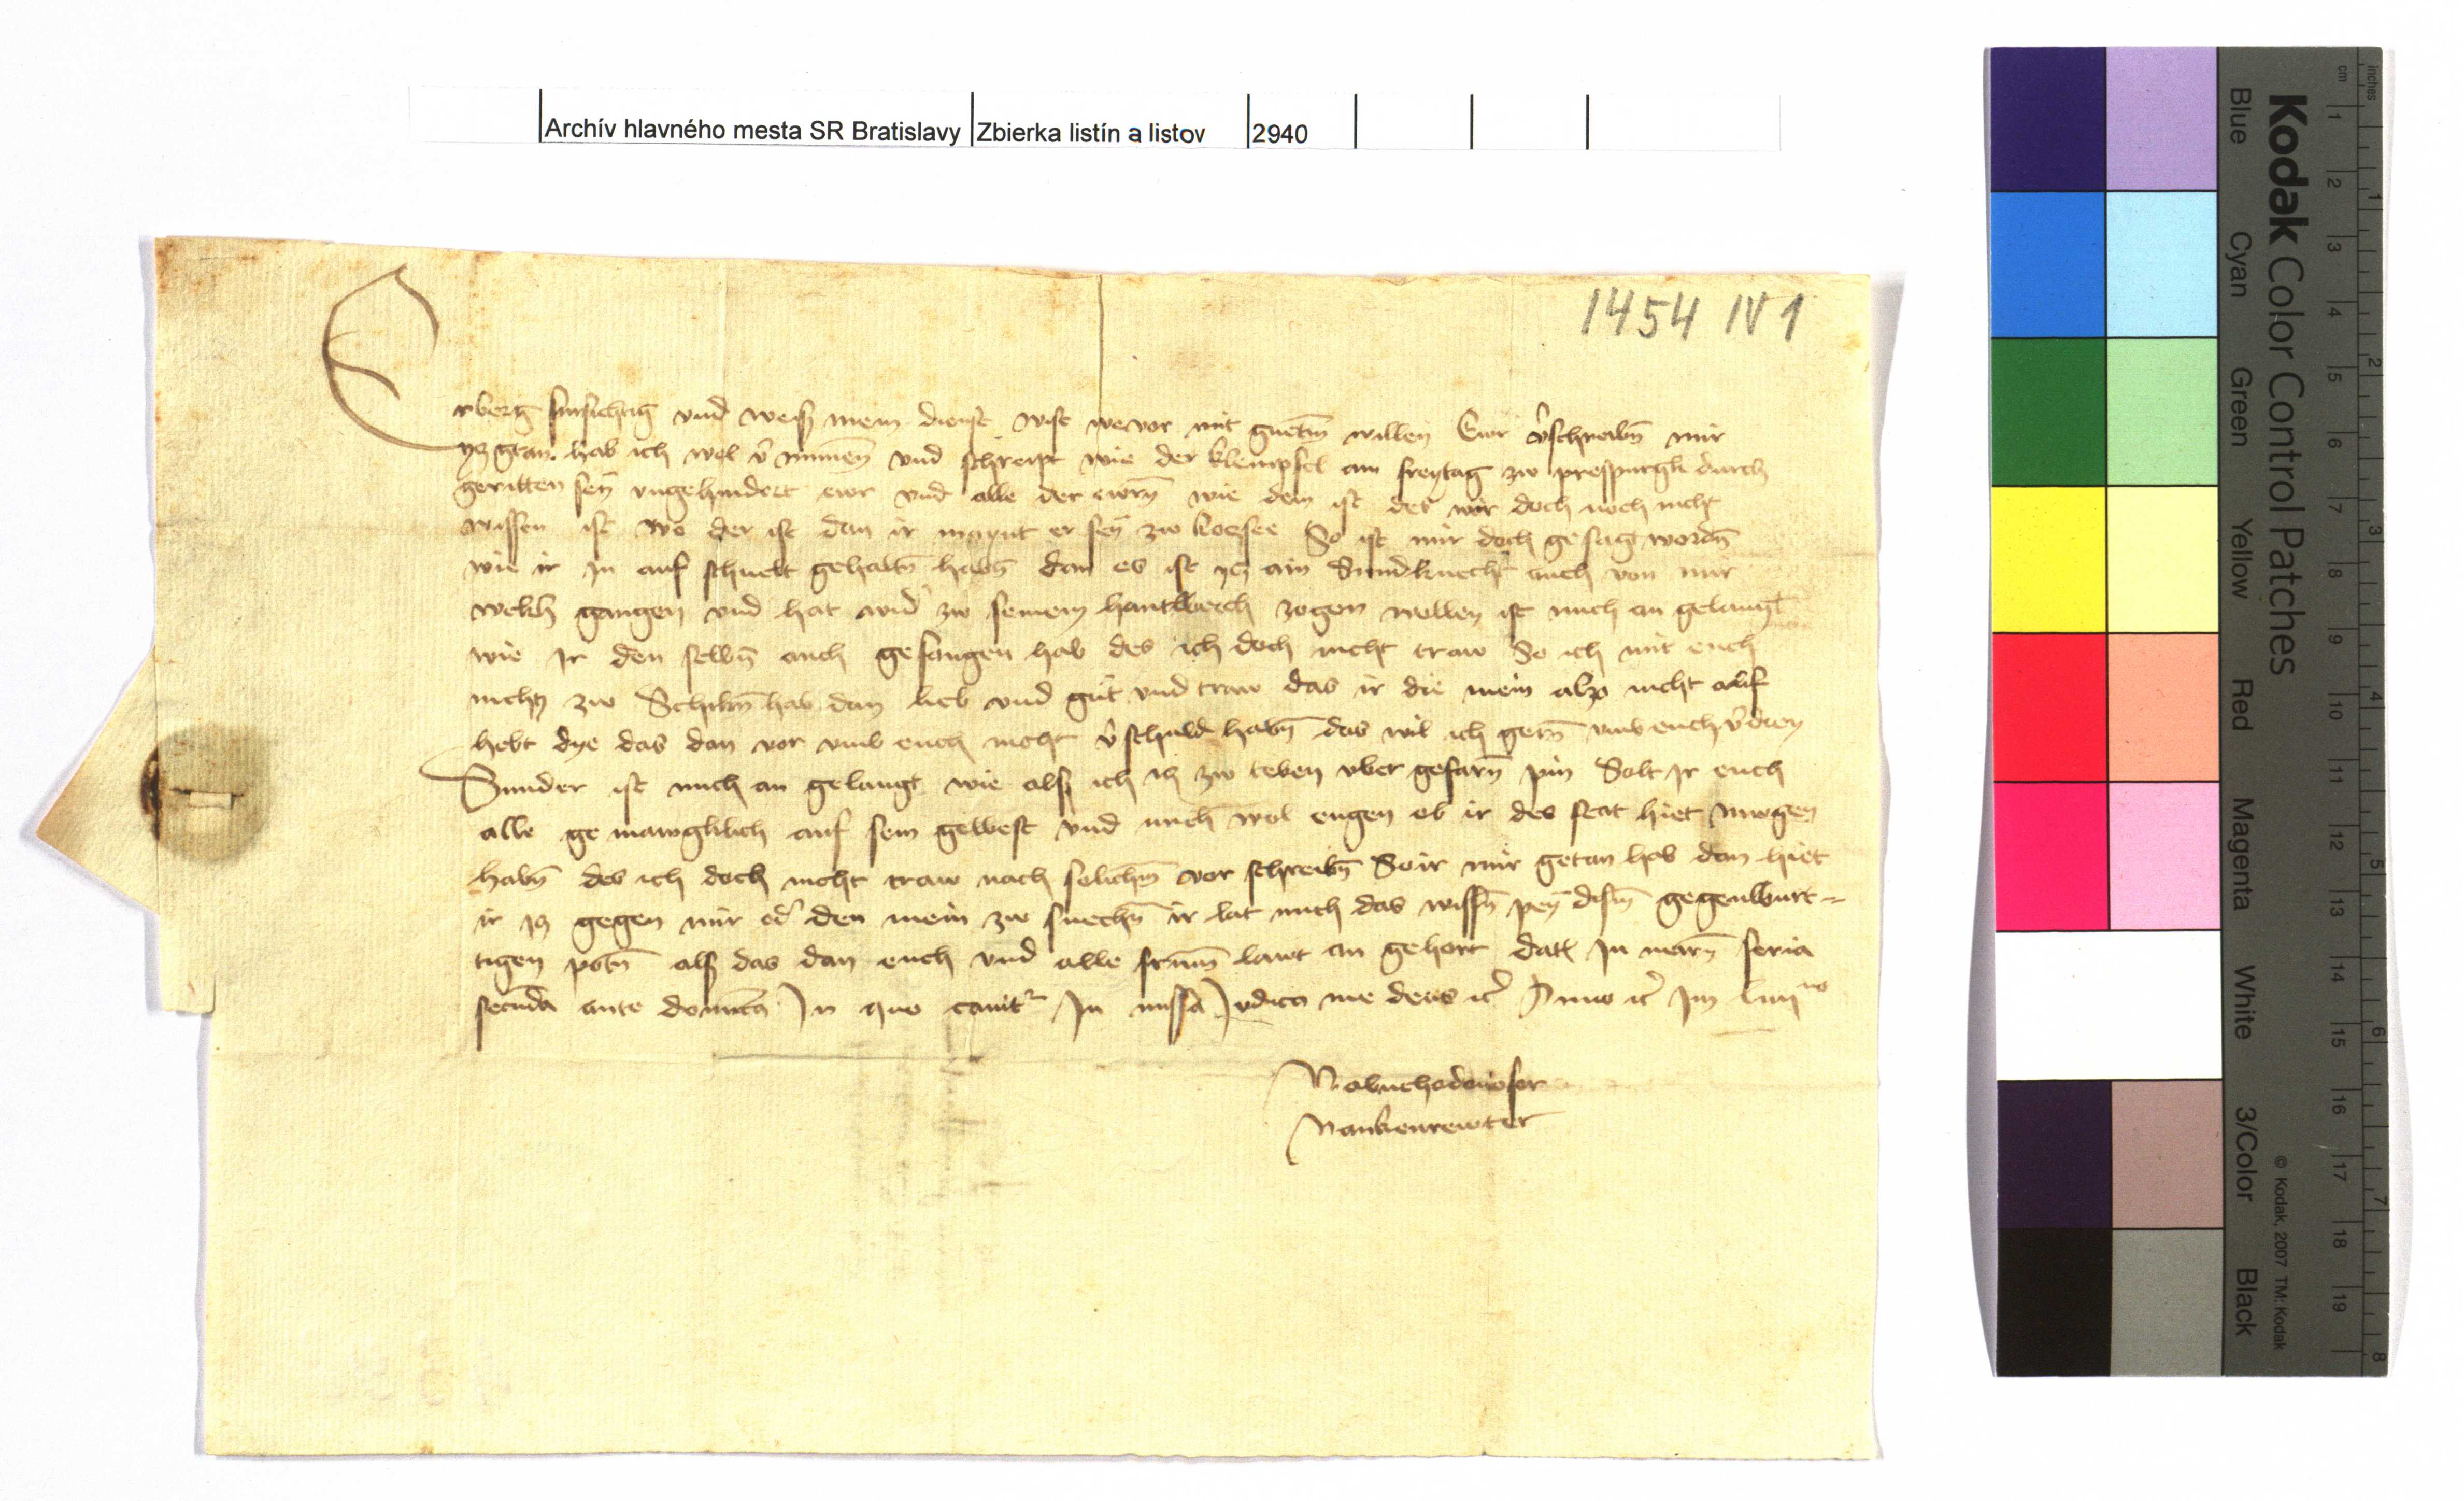 Archív hlavného mesta SR Bratislavy Zbierka listín a listov 2940
1454 IV 1
Erberg fursichtig vnd weis mein dienst wist wevor mit guetm̄ willen Ewr v̄schreibn̄ mir
ycz getan hab ich wol v̄numen̄ vnd schreipt wie der klempfel am freytag zw prespurgk durch
geritten sey vngehindert ewr vnd alle der ewrn̄ wie dem ist des wir doch noch nicht
wissen ist wo der ist dan ir maynt er sey zw koesee So ist mir doch gesagt wordn̄
wie ir in auf schuelt gehaltn̄ habn̄ dan es ist ycz ain Sundknecht auch von mir
weckh gangen vnd hat wid zw seinem hantwerch zogen wellen ist mich an gelangt
wie Ir den selbn̄ auch gefangen hab des ich doch nicht traw So ich mit euch
nichcz zw Schikn̄ hab dan lieb vnd gut vnd traw das ir die mein also nicht auf
hebt dye das dan vor vmb euch nicht v̄schuld habn̄ das wil ich gern̄ vmb euch v̄dien
Sunder ist mich an gelangt wie als ich ycz zw teben vber gefarn̄ pin Solt Ir euch
alle ge mawgklich auf sein gewest vnd mich wol eugen ob ir des stat hiet mugen
habn̄ des ich doch nicht traw nach solichm̄ vor schreibn̄ So ir mir getan hab dan hiet
ir ycz gegen mir od den mein zw suechn̄ ir lat mich das wissn̄ pey dism̄ gegenwurt-
tigen potn̄ als das dan euch vnd alle frum̄ lawt an gehort dat In marn̄ feria
secunda ante domica In quo canitr In missa Judica me deus etc Anno etc Im liiiito
Nabuchodonosor
Nankenrewter
Kodak Color Control Patches
Blue Cyan Green Yellow Red Magenta White 3/Color Black
© Kodak, 2007 TM: Kodak
inches 1 2 3 4 5 6 7 8
cm 1 2 3 4 5 6 7 8 9 10 11 12 13 14 15 16 17 18 19